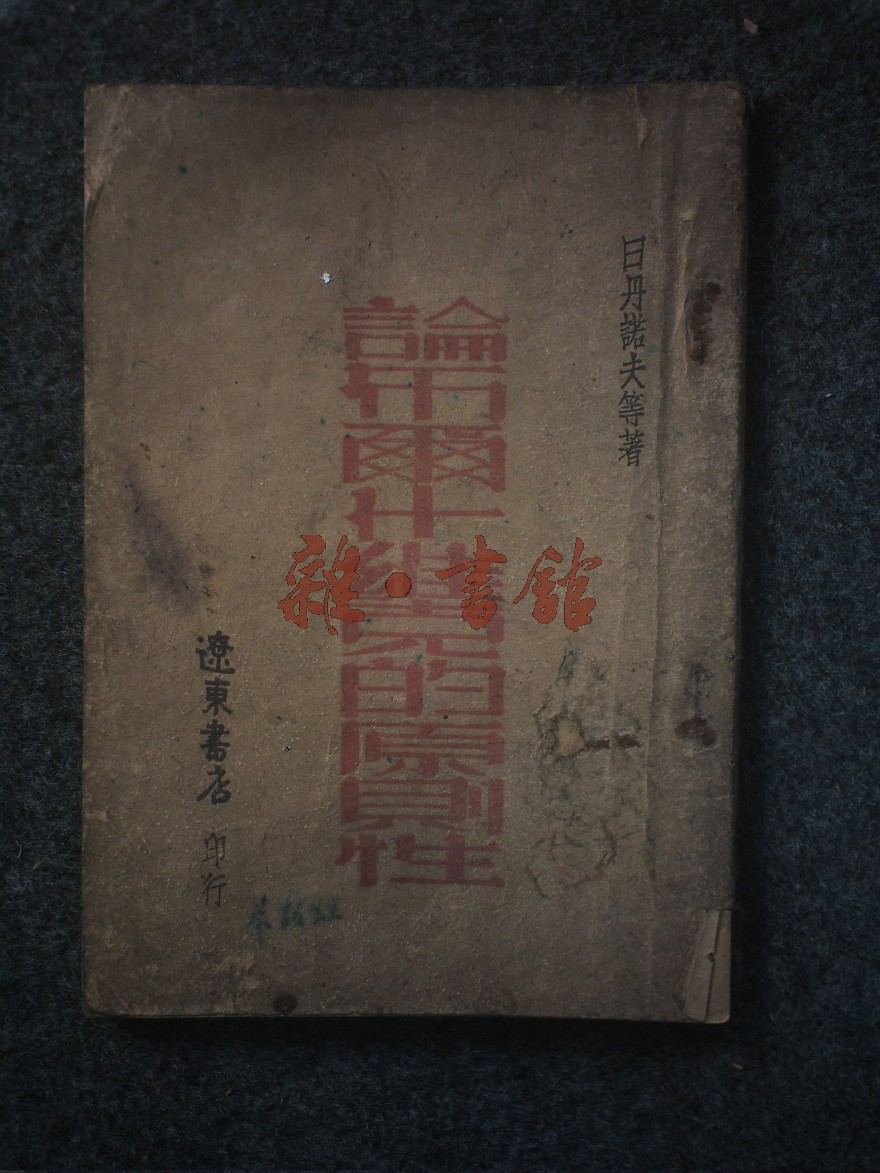 日丹諾夫等著
論布爾什維克的原則性
遼東書店 印行
雜·書館